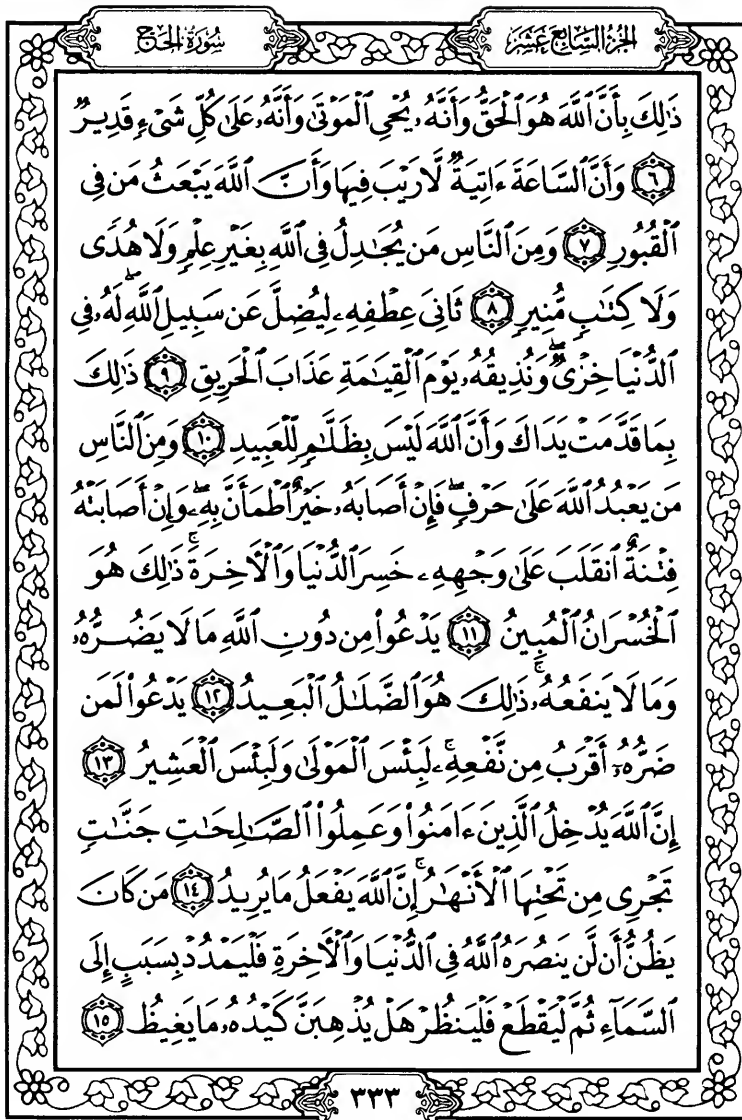 الجُزْءُ السَّابِعَ عَشَرَ
سُورَةُ الحَجِّ
ذَٰلِكَ بِأَنَّ ٱللَّهَ هُوَ ٱلْحَقُّ وَأَنَّهُۥ يُحْىِ ٱلْمَوْتَىٰ وَأَنَّهُۥ عَلَىٰ كُلِّ شَىْءٍ قَدِيرٌ
٦ وَأَنَّ ٱلسَّاعَةَ ءَاتِيَةٌ لَّا رَيْبَ فِيهَا وَأَنَّ ٱللَّهَ يَبْعَثُ مَن فِى
ٱلْقُبُورِ ٧ وَمِنَ ٱلنَّاسِ مَن يُجَٰدِلُ فِى ٱللَّهِ بِغَيْرِ عِلْمٍ وَلَا هُدًى
وَلَا كِتَٰبٍ مُّنِيرٍ ٨ ثَانِىَ عِطْفِهِۦ لِيُضِلَّ عَن سَبِيلِ ٱللَّهِ ۖ لَهُۥ فِى
ٱلدُّنْيَا خِزْىٌ ۖ وَنُذِيقُهُۥ يَوْمَ ٱلْقِيَٰمَةِ عَذَابَ ٱلْحَرِيقِ ٩ ذَٰلِكَ
بِمَا قَدَّمَتْ يَدَاكَ وَأَنَّ ٱللَّهَ لَيْسَ بِظَلَّٰمٍ لِّلْعَبِيدِ ١٠ وَمِنَ ٱلنَّاسِ
مَن يَعْبُدُ ٱللَّهَ عَلَىٰ حَرْفٍ ۖ فَإِنْ أَصَابَهُۥ خَيْرٌ ٱطْمَأَنَّ بِهِۦ ۖ وَإِنْ أَصَابَتْهُ
فِتْنَةٌ ٱنقَلَبَ عَلَىٰ وَجْهِهِۦ خَسِرَ ٱلدُّنْيَا وَٱلْءَاخِرَةَ ۚ ذَٰلِكَ هُوَ
ٱلْخُسْرَانُ ٱلْمُبِينُ ١١ يَدْعُوا۟ مِن دُونِ ٱللَّهِ مَا لَا يَضُرُّهُۥ
وَمَا لَا يَنفَعُهُۥ ۚ ذَٰلِكَ هُوَ ٱلضَّلَٰلُ ٱلْبَعِيدُ ١٢ يَدْعُوا۟ لَمَن
ضَرُّهُۥٓ أَقْرَبُ مِن نَّفْعِهِۦ ۚ لَبِئْسَ ٱلْمَوْلَىٰ وَلَبِئْسَ ٱلْعَشِيرُ ١٣
إِنَّ ٱللَّهَ يُدْخِلُ ٱلَّذِينَ ءَامَنُوا۟ وَعَمِلُوا۟ ٱلصَّٰلِحَٰتِ جَنَّٰتٍ
تَجْرِى مِن تَحْتِهَا ٱلْأَنْهَٰرُ ۚ إِنَّ ٱللَّهَ يَفْعَلُ مَا يُرِيدُ ١٤ مَن كَانَ
يَظُنُّ أَن لَّن يَنصُرَهُ ٱللَّهُ فِى ٱلدُّنْيَا وَٱلْءَاخِرَةِ فَلْيَمْدُدْ بِسَبَبٍ إِلَى
ٱلسَّمَآءِ ثُمَّ لْيَقْطَعْ فَلْيَنظُرْ هَلْ يُذْهِبَنَّ كَيْدُهُۥ مَا يَغِيظُ ١٥
٣٣٣